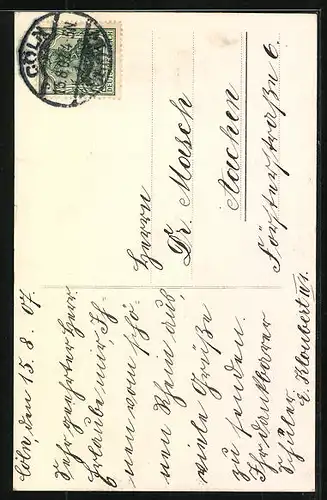 CÖLN
15.8.07
Herrn
Dr. Mosch
Aachen
Försterstraße 6.
Cöln, den 15. 8. 07.
Sehr geehrter Herr.
Erlaube mir Ih-
nen vom schö-
nen Rhein aus,
viele Grüße
zu senden.
Ihr dankbarer
Schüler.